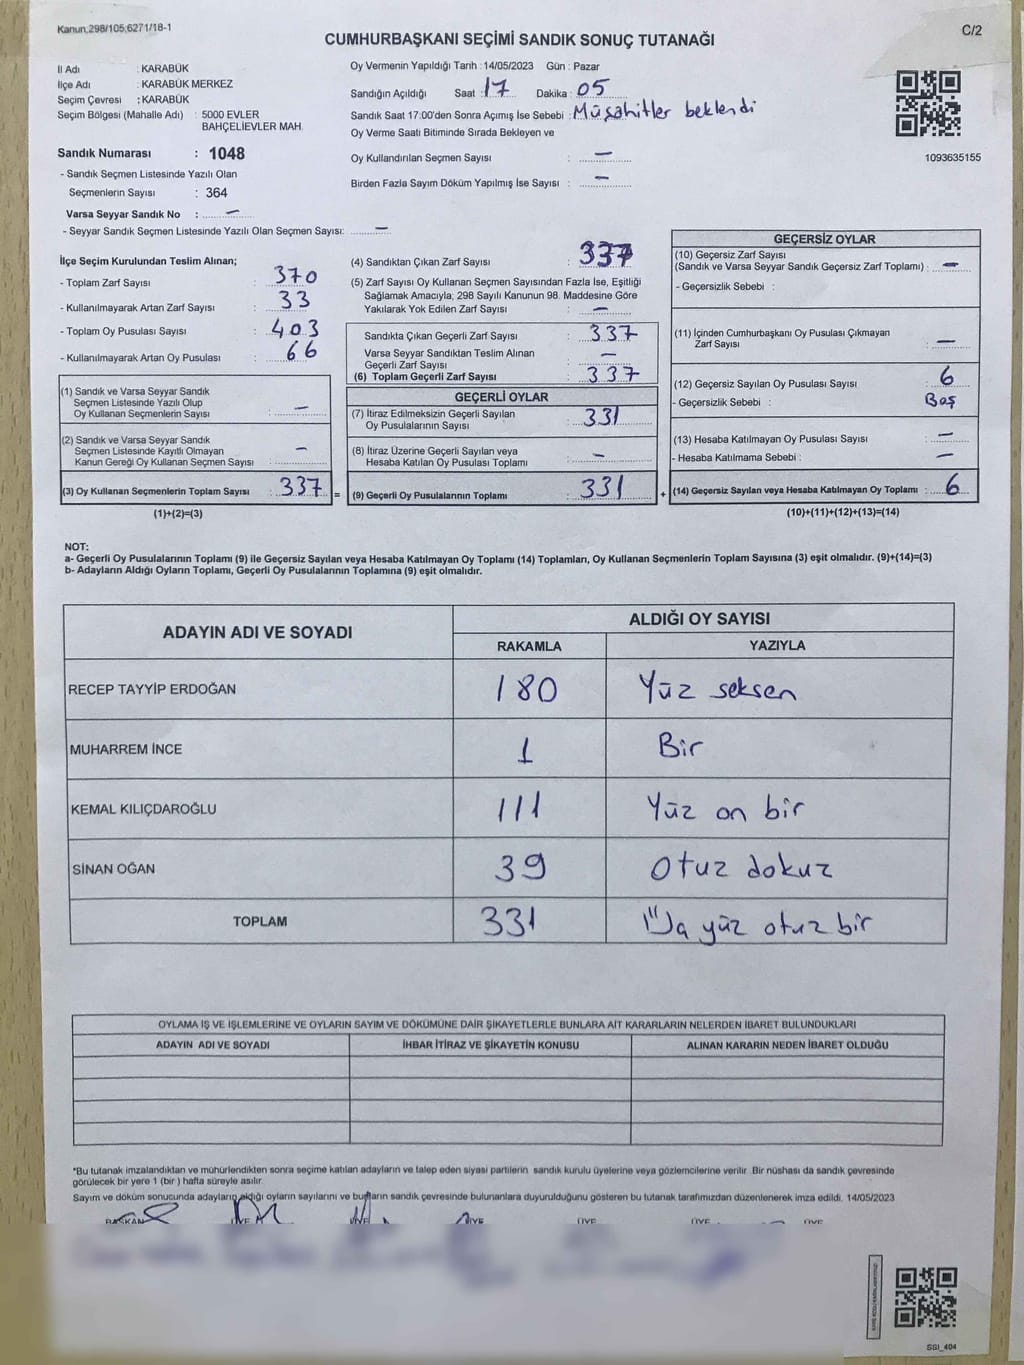 Kanun,298/105,6271/18-1
C/2
CUMHURBAŞKANI SEÇİMİ SANDIK SONUÇ TUTANAĞI
İl Adı : KARABÜK
İlçe Adı : KARABÜK MERKEZ
Seçim Çevresi : KARABÜK
Seçim Bölgesi (Mahalle Adı) : 5000 EVLER
BAHÇELİEVLER MAH.
Sandık Numarası : 1048
- Sandık Seçmen Listesinde Yazılı Olan
Seçmenlerin Sayısı : 364
Varsa Seyyar Sandık No : —
- Seyyar Sandık Seçmen Listesinde Yazılı Olan Seçmen Sayısı: —
Oy Vermenin Yapıldığı Tarih : 14/05/2023 Gün : Pazar
Sandığın Açıldığı Saat : 17 Dakika : 05
Sandık Saat 17:00'den Sonra Açımış İse Sebebi : Müşahitler beklendi
Oy Verme Saati Bitiminde Sırada Bekleyen ve
Oy Kullandırılan Seçmen Sayısı : —
Birden Fazla Sayım Döküm Yapılmış İse Sayısı : —
1093635155
İlçe Seçim Kurulundan Teslim Alınan;
- Toplam Zarf Sayısı : 370
- Kullanılmayarak Artan Zarf Sayısı : 33
- Toplam Oy Pusulası Sayısı : 403
- Kullanılmayarak Artan Oy Pusulası : 66
(1) Sandık ve Varsa Seyyar Sandık
Seçmen Listesinde Yazılı Olup
Oy Kullanan Seçmenlerin Sayısı : —
(2) Sandık ve Varsa Seyyar Sandık
Seçmen Listesinde Kayıtlı Olmayan
Kanun Gereği Oy Kullanan Seçmen Sayısı : —
(3) Oy Kullanan Seçmenlerin Toplam Sayısı : 337 =
(1)+(2)=(3)
(4) Sandıktan Çıkan Zarf Sayısı : 337
(5) Zarf Sayısı Oy Kullanan Seçmen Sayısından Fazla İse, Eşitliği
Sağlamak Amacıyla; 298 Sayılı Kanunun 98. Maddesine Göre
Yakılarak Yok Edilen Zarf Sayısı : —
Sandıkta Çıkan Geçerli Zarf Sayısı : 337
Varsa Seyyar Sandıktan Teslim Alınan
Geçerli Zarf Sayısı : —
(6) Toplam Geçerli Zarf Sayısı : 337
GEÇERLİ OYLAR
(7) İtiraz Edilmeksizin Geçerli Sayılan
Oy Pusulalarının Sayısı : 331
(8) İtiraz Üzerine Geçerli Sayılan veya
Hesaba Katılan Oy Pusulası Toplamı : —
(9) Geçerli Oy Pusulalarının Toplamı : 331 +
GEÇERSİZ OYLAR
(10) Geçersiz Zarf Sayısı
(Sandık ve Varsa Seyyar Sandık Geçersiz Zarf Toplamı) : —
- Geçersizlik Sebebi :
(11) İçinden Cumhurbaşkanı Oy Pusulası Çıkmayan
Zarf Sayısı : —
(12) Geçersiz Sayılan Oy Pusulası Sayısı : 6
- Geçersizlik Sebebi : Boş
(13) Hesaba Katılmayan Oy Pusulası Sayısı : —
- Hesaba Katılmama Sebebi : —
(14) Geçersiz Sayılan veya Hesaba Katılmayan Oy Toplamı : 6
(10)+(11)+(12)+(13)=(14)
NOT:
a- Geçerli Oy Pusulalarının Toplamı (9) ile Geçersiz Sayılan veya Hesaba Katılmayan Oy Toplamı (14) Toplamları, Oy Kullanan Seçmenlerin Toplam Sayısına (3) eşit olmalıdır. (9)+(14)=(3)
b- Adayların Aldığı Oyların Toplamı, Geçerli Oy Pusulalarının Toplamına (9) eşit olmalıdır.
ADAYIN ADI VE SOYADI
ALDIĞI OY SAYISI
RAKAMLA YAZIYLA
RECEP TAYYİP ERDOĞAN 180 Yüz seksen
MUHARREM İNCE 1 Bir
KEMAL KILIÇDAROĞLU 111 Yüz on bir
SİNAN OĞAN 39 Otuz dokuz
TOPLAM 331 yüz otuz bir
OYLAMA İŞ VE İŞLEMLERİNE VE OYLARIN SAYIM VE DÖKÜMÜNE DAİR ŞİKAYETLERLE BUNLARA AİT KARARLARIN NELERDEN İBARET BULUNDUKLARI
ADAYIN ADI VE SOYADI İHBAR İTİRAZ VE ŞİKAYETİN KONUSU ALINAN KARARIN NEDEN İBARET OLDUĞU
*Bu tutanak imzalandıktan ve mühürlendikten sonra seçime katılan adayların ve talep eden siyasi partilerin sandık kurulu üyelerine veya gözlemcilerine verilir. Bir nüshası da sandık çevresinde
görülecek bir yere 1 (bir ) hafta süreyle asılır.
Sayım ve döküm sonucunda adayların aldığı oyların sayılarını ve bunların sandık çevresinde bulunanlara duyurulduğunu gösteren bu tutanak tarafımızdan düzenlenerek imza edildi. 14/05/2023
BAŞKAN ÜYE ÜYE ÜYE ÜYE ÜYE ÜYE
SSI_404